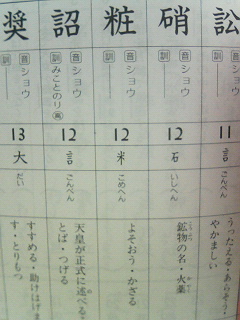 訟
音 ショウ
訓
11
言
ごんべん
うったえる・あらそう・
やかましい
硝
音 ショウ
訓
12
石
いしへん
鉱物の名・火薬
かやく
粧
音 ショウ
訓
12
米
こめへん
よそおう・かざる
詔
音 ショウ
訓 みことのり 高
12
言
ごんべん
天皇が正式に述べる・こ
とば・つげる
奨
音 ショウ
訓
13
大
だい
すすめる・助けはげま
す・とりもつ